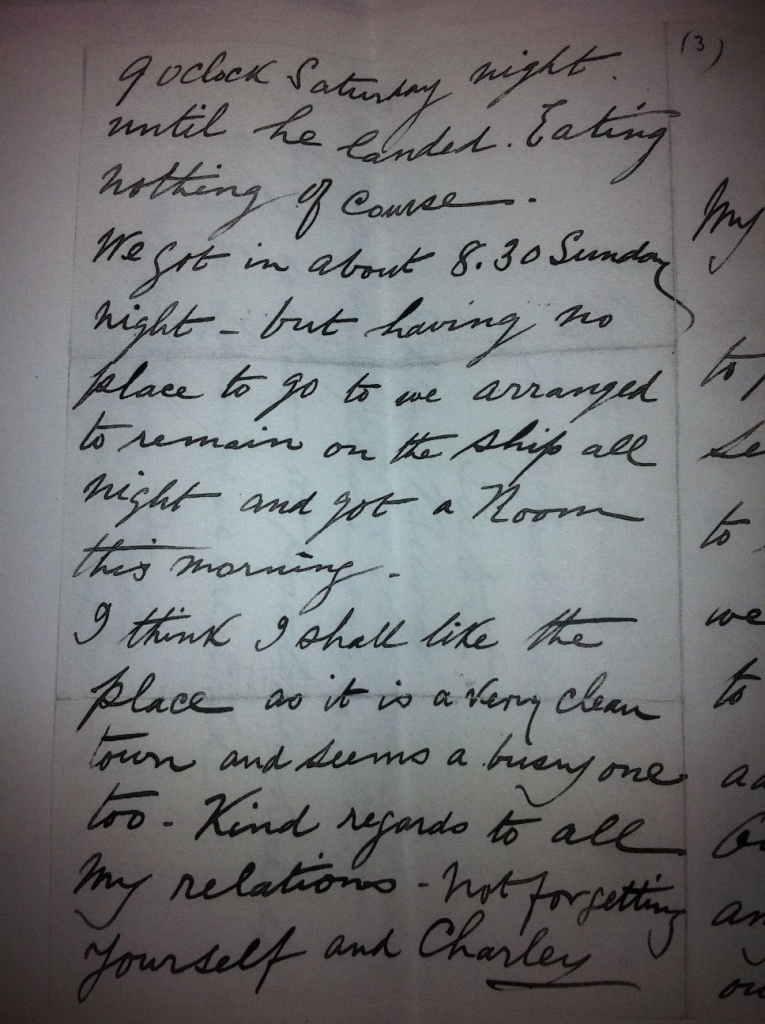 (3)
9 oclock Saturday night.
until he landed. Eating
nothing of course.
We got in about 8.30 Sunday
night - but having no
place to go to we arranged
to remain on the ship all
night and got a Room
this morning.
I think I shall like the
place as it is a very clean
town and seems a busy one
too - Kind regards to all
my relations - not forgetting
yourself and Charley
My
to
se
to
we
to
an